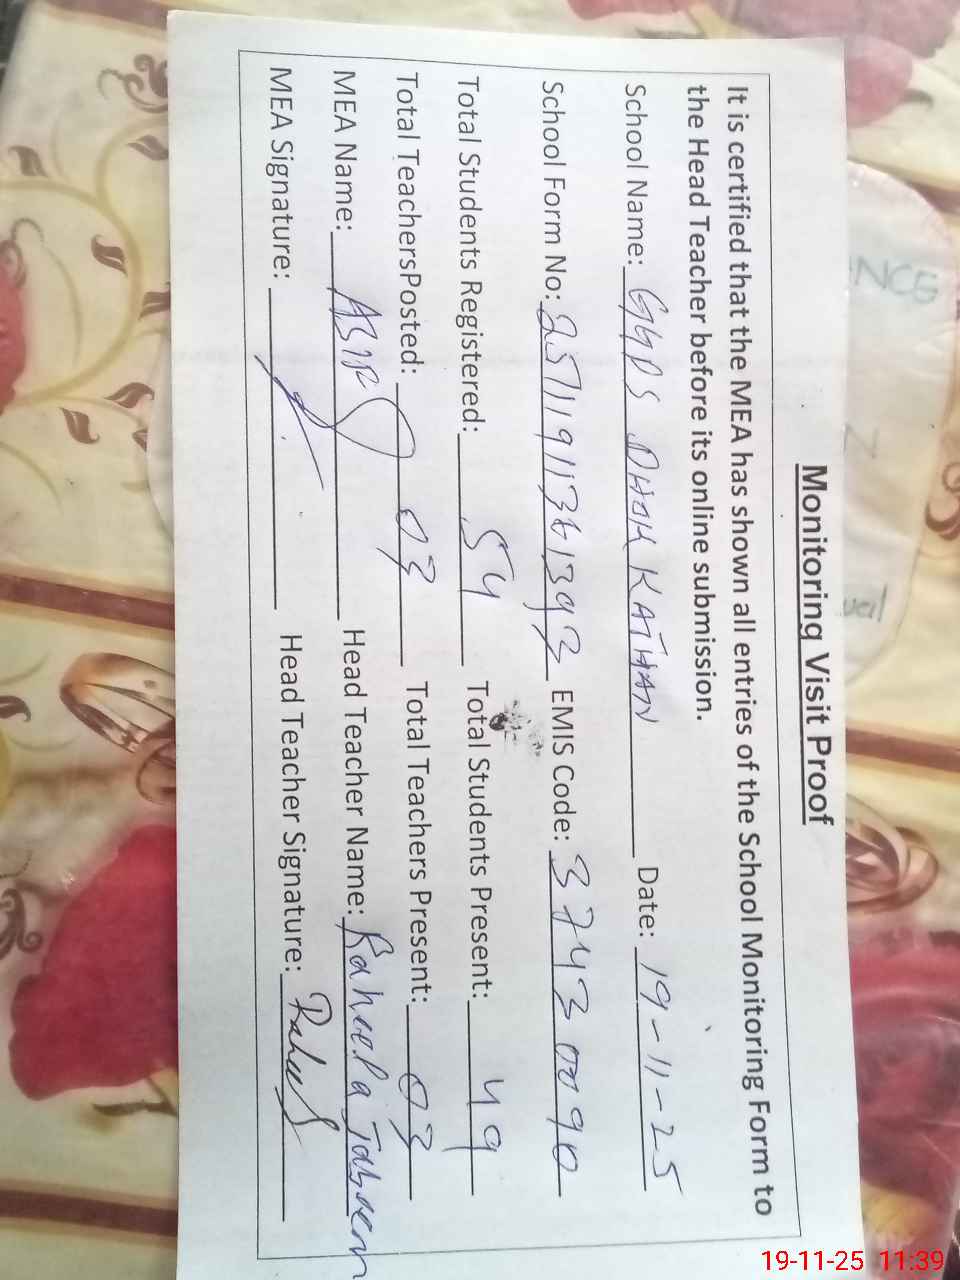 Monitoring Visit Proof
It is certified that the MEA has shown all entries of the School Monitoring Form to
the Head Teacher before its online submission.
School Name: GGPS DHOK KATHAN Date: 19-11-25
School Form No: EMIS Code: 37430090
Total Students Registered: 54 Total Students Present: 49
Total TeachersPosted: 03 Total Teachers Present: 03
MEA Name: Head Teacher Name: Raheela Tabseem
MEA Signature: Head Teacher Signature:
NCE
N
19-11-25 11:39